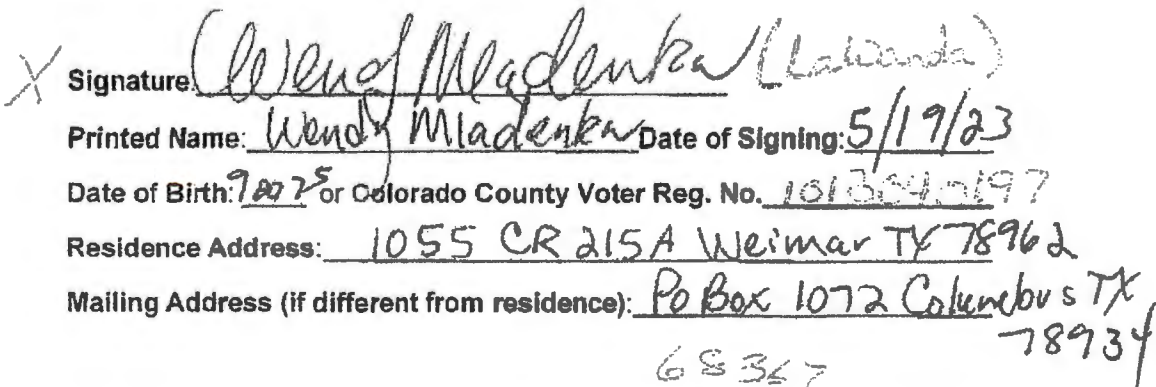 X Signature: Wendy Mladenka (LaWanda)
Printed Name: Wendy Mladenka Date of Signing: 5/19/23
Date of Birth: or Colorado County Voter Reg. No.
Residence Address: 1055 CR 215A Weimar TX 78962
Mailing Address (if different from residence): Po Box 1072 Columbus TX
78934